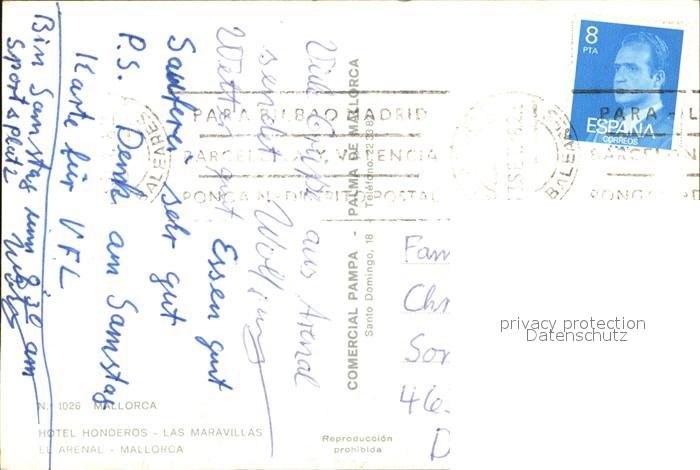 Viele Grüße aus Arenal
sendet Wolfgang
Wetter gut Essen gut
Saufen sehr gut
P.S. Denk am Samstag
Karte für VFL
Bin Samstag um am
Sportsplatz
8
PTA
ESPAÑA
CORREOS
PARA BILBAO MADRID
BARCELONA Y VALENCIA
PONGA DISTRITO POSTAL
BALEARES
PARA - L
BARCELON
PONGA
BALEAR
COMERCIAL PAMPA - PALMA DE MALLORCA
Santo Domingo, 18 - Teléfono: 22 33 82
Fam
Chr
Son
463
D
privacy protection
Datenschutz
N.º 1026 MALLORCA
HOTEL HONDEROS - LAS MARAVILLAS
EL ARENAL - MALLORCA
Reproducción
prohibida